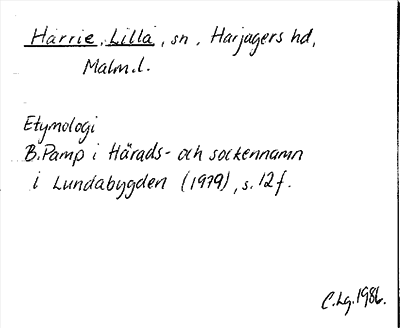 Härrie, Lilla, sn, Harjagers hd,
Malm.l.
Etymologi
B. Pamp i Härads- och sockennamn
i Lundabygden (1979), s. 12 f.
C.Lg. 1986.